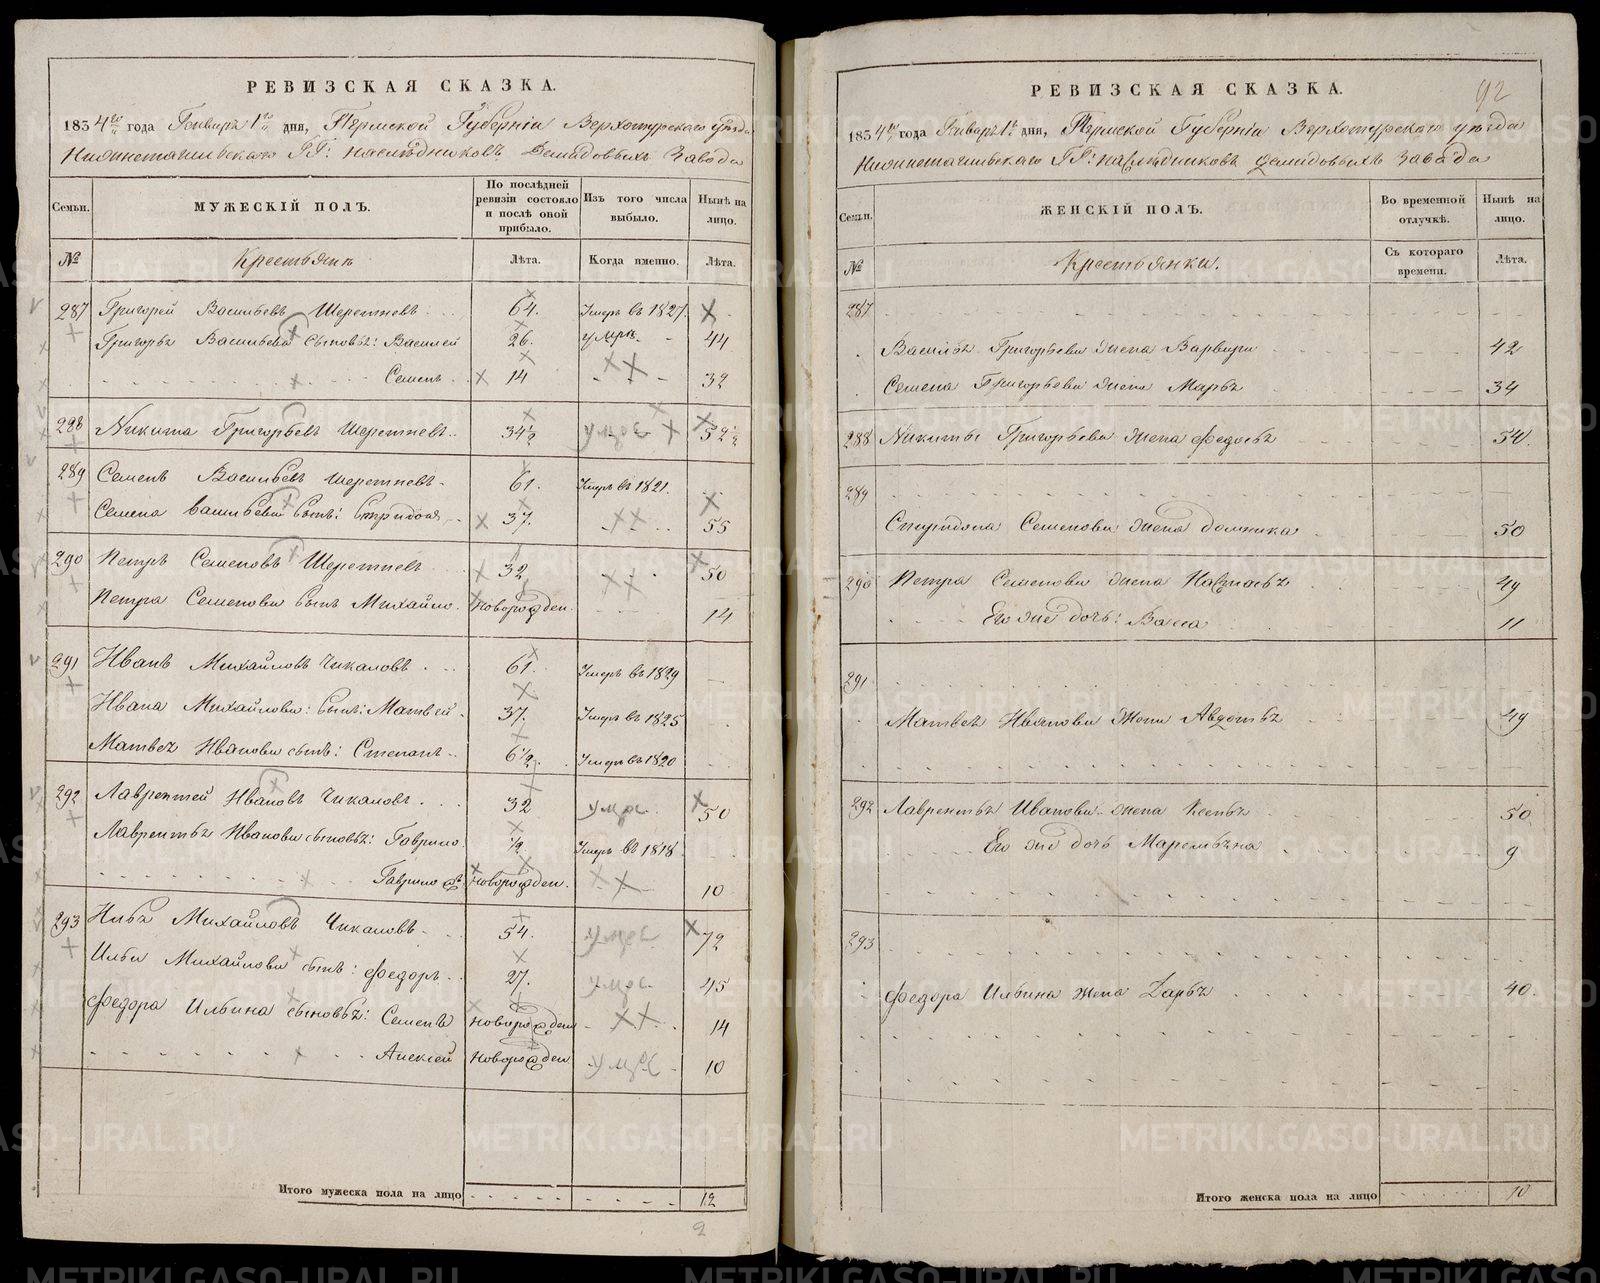 РЕВИЗСКАЯ СКАЗКА.
1834го года Генваря 1го дня, Пермской Губерніи Верхотурскаго уѣзда
Нижнетагильскаго ГГ: наслѣдниковъ Демидовыхъ Завода
Семьи. МУЖЕСКІЙ ПОЛЪ. По послѣдней ревизіи состояло и послѣ оной прибыло. Изъ того числа выбыло. Нынѣ на лицо.
№ Крестьянъ Лѣта. Когда именно. Лѣта.
287 Григорей Васильевъ Шереметевъ 64. Умеръ въ 1827.
Григорья Васильева сыновья: Василей 26. умре. 44
Семенъ 14 32
288 Никита Григорьевъ Шереметевъ 34½ умре 52½
289 Семенъ Васильевъ Шереметевъ 61. Умеръ въ 1821.
Семена Васильева сынъ: Спиридонъ 37. 55
290 Петръ Семеновъ Шереметевъ 32 50
Петра Семенова сынъ Михайло новорожден. 14
291 Иванъ Михайловъ Чикаловъ 61. Умеръ въ 1829
Ивана Михайлова: сынъ: Матвей 37. Умеръ въ 1825
Матвея Иванова сынъ: Степанъ 6½. Умеръ въ 1820
292 Лаврентей Ивановъ Чикаловъ 32 умре. 50
Лаврентья Иванова сыновья: Гаврило ½ Умеръ въ 1818
Гаврило 2й новорожден. 10
293 Илья Михайловъ Чикаловъ 54. умре 72
Ильи Михайлова сынъ: Федоръ 27. умре. 45
Федора Ильина сыновья: Семенъ новорожден 14
Алексей новорожден умре 10
Итого мужеска пола на лицо 12
2
92
РЕВИЗСКАЯ СКАЗКА.
1834го года Генваря 1го дня, Пермской Губерніи Верхотурскаго уѣзда
Нижнетагильскаго ГГ: наслѣдниковъ Демидовыхъ Завода
Семьи. ЖЕНСКІЙ ПОЛЪ. Во временной отлучкѣ. Нынѣ на лицо.
№ Крестьянки. Съ котораго времени. Лѣта.
287
Василья Григорьева жена Варвара 42
Семена Григорьева жена Марья 34
288 Никиты Григорьева жена Федосья 54.
289
Спиридона Семенова жена Домника 50
290 Петра Семенова жена Настасья 49
Его же дочь: Васса 11
291
Матвея Иванова жена Авдотья 49
292 Лаврентья Иванова жена Ксенья 50
Его же дочь Маремьяна 9
293
Федора Ильина жена Дарья 40.
Итого женска пола на лицо 10
METRIKI.GASO-URAL.RU